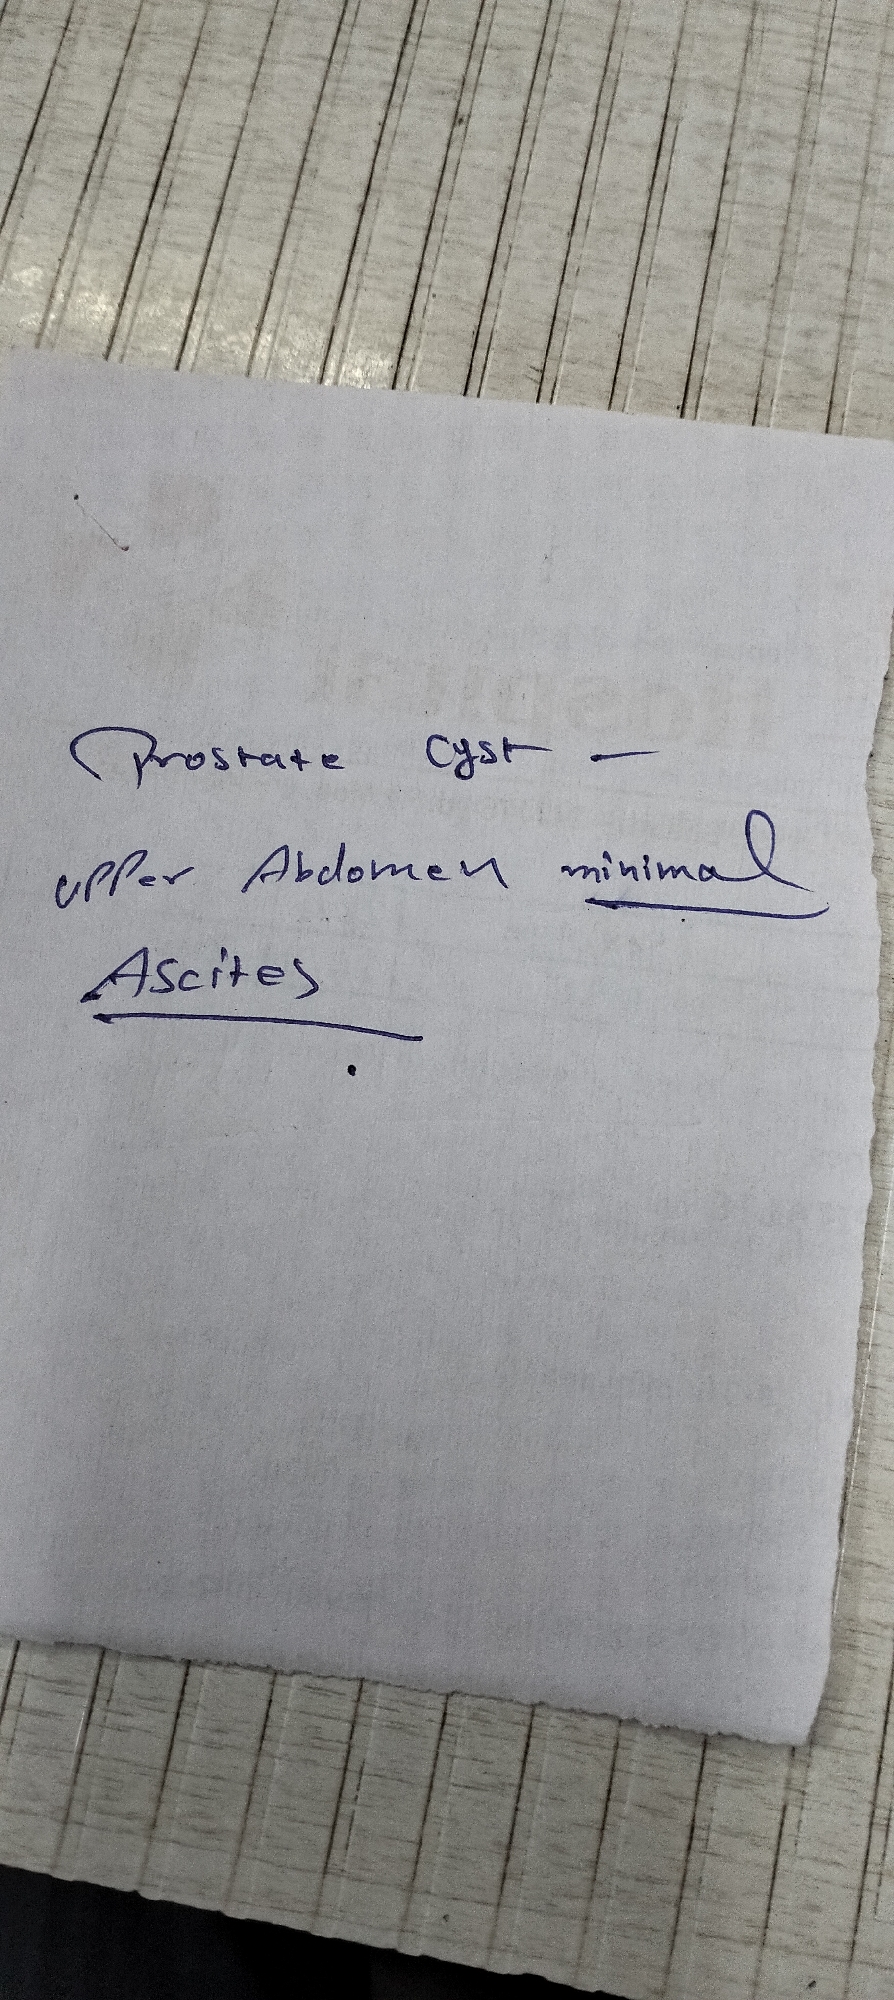 Prostate cyst —
upper Abdomen minimal
Ascites